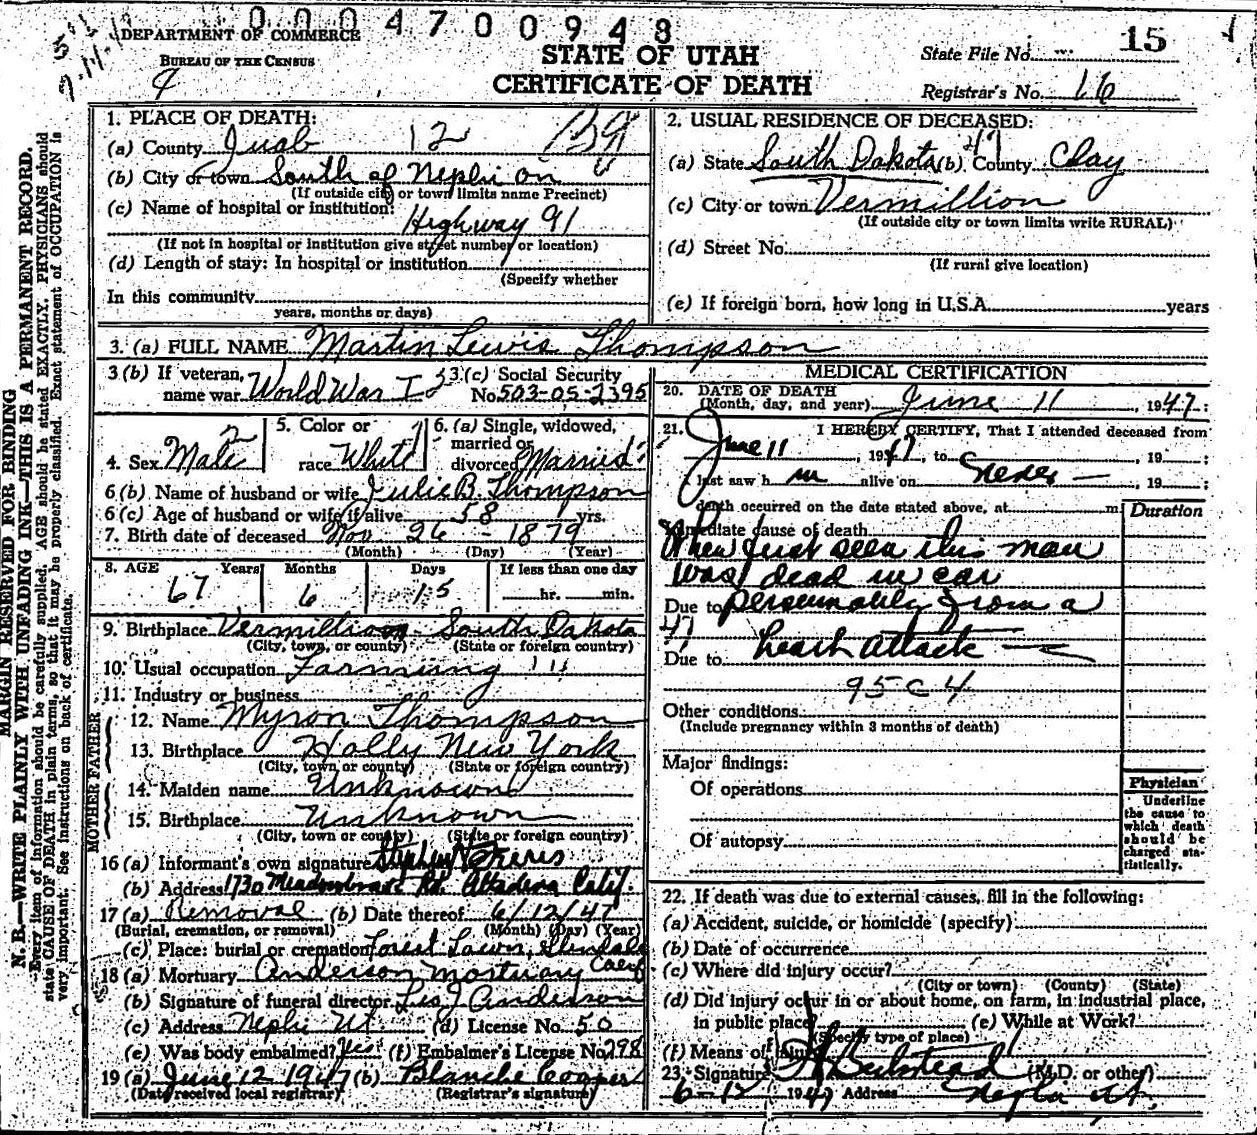 0 0 0 4 7 0 0 9 4 8
DEPARTMENT OF COMMERCE
BUREAU OF THE CENSUS
STATE OF UTAH
CERTIFICATE OF DEATH
State File No. 15
Registrar's No. 16
MARGIN RESERVED FOR BINDING
N. B.—WRITE PLAINLY WITH UNFADING INK—THIS IS A PERMANENT RECORD.
Every item of information should be carefully supplied. AGE should be stated EXACTLY. PHYSICIANS should
state CAUSE OF DEATH in plain terms, so that it may be properly classified. Exact statement of OCCUPATION is
very important. See instructions on back of certificate.
1. PLACE OF DEATH:
(a) County Juab 12
(b) City or town South of Nephi on
(If outside city or town limits name Precinct)
(c) Name of hospital or institution:
Highway 91
(If not in hospital or institution give street number or location)
(d) Length of stay: In hospital or institution
(Specify whether
In this community
years, months or days)
2. USUAL RESIDENCE OF DECEASED:
47
(a) State South Dakota (b) County Clay
(c) City or town Vermillion
(If outside city or town limits write RURAL)
(d) Street No.
(If rural give location)
(e) If foreign born, how long in U.S.A. years
3. (a) FULL NAME Martin Lewis Thompson
3 (b) If veteran, name war World War I
3 (c) Social Security No. 503-05-2395
4. Sex Male
5. Color or race White
6. (a) Single, widowed, married or divorced Married
6 (b) Name of husband or wife Julie B. Thompson
6 (c) Age of husband or wife if alive 58 yrs.
7. Birth date of deceased Nov 26 - 1879
(Month) (Day) (Year)
8. AGE Years Months Days If less than one day
67 6 15 hr. min.
9. Birthplace Vermillion South Dakota
(City, town, or county) (State or foreign country)
10. Usual occupation Farming
11. Industry or business
FATHER
12. Name Myron Thompson
13. Birthplace Holly New York
(City, town or county) (State or foreign country)
MOTHER
14. Maiden name Unknown
15. Birthplace Unknown
(City, town or county) (State or foreign country)
16 (a) Informant's own signature Stephen
(b) Address 1730 Rd. Altadena Calif.
17 (a) Removal (b) Date thereof 6/12/47
(Burial, cremation, or removal) (Month) (Day) (Year)
(c) Place: burial or cremation Forest Lawn, Glendale Calif
18 (a) Mortuary Anderson Mortuary
(b) Signature of funeral director Leo J Anderson
(c) Address Nephi Ut. (d) License No. 50
(e) Was body embalmed? Yes (f) Embalmer's License No. 298
19 (a) June 12 1947 (b) Blanche Cooper
(Date received local registrar) (Registrar's signature)
MEDICAL CERTIFICATION
20. DATE OF DEATH
(Month, day, and year) June 11, 1947;
21. I HEREBY CERTIFY, That I attended deceased from
June 11, 1947, to , 19 ;
I last saw h m alive on never —, 19 ;
death occurred on the date stated above, at m.
Duration
Immediate cause of death
When first seen this man
was dead in car
Due to presumably from a
47
Due to heart attack
95-C 4
Other conditions
(Include pregnancy within 3 months of death)
Major findings:
Of operations
Of autopsy
Physician
Underline
the cause to
which death
should be
charged sta-
tistically.
22. If death was due to external causes, fill in the following:
(a) Accident, suicide, or homicide (specify)
(b) Date of occurrence
(c) Where did injury occur?
(City or town) (County) (State)
(d) Did injury occur in or about home, on farm, in industrial place,
in public place? (e) While at Work?
(Specify type of place)
(f) Means of injury
23. Signature (M.D. or other)
6-12 1947 Address Nephi Ut.